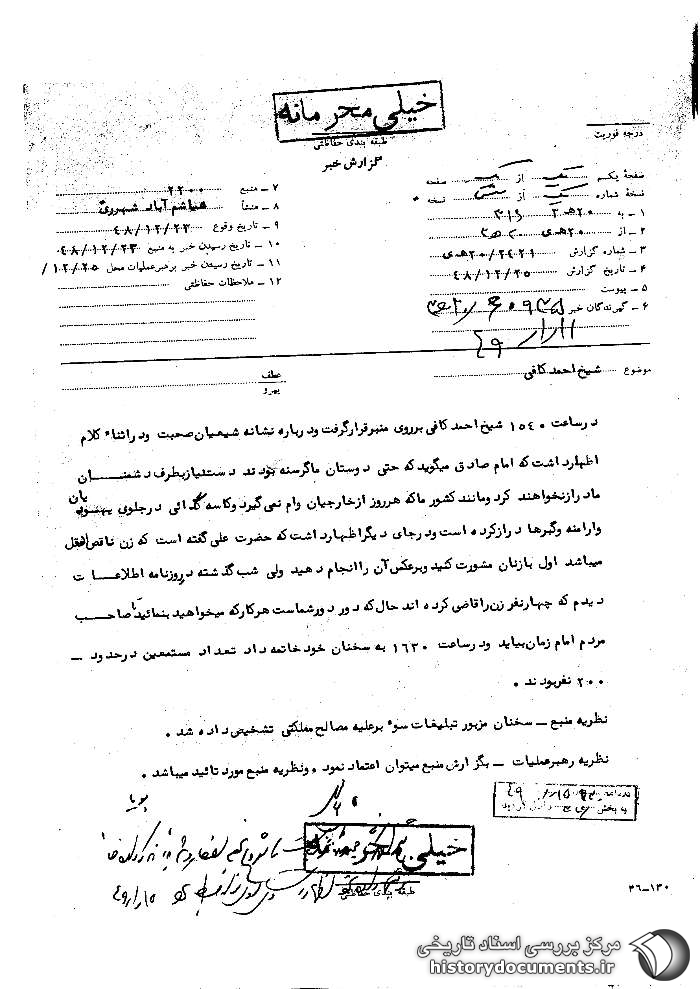 خیلی محرمانه
طبقه بندی حفاظتی
گزارش خبر
درجه فوریت
صفحه یکم یک از یک صفحه
نسخه شماره یک از نسخه
۱ – به ۲۰ ه‍ ۳۱۶
۲ – از ۲۰ ه‍ ی
۳ – شماره گزارش ۲۰/۲۴۲۱ ه‍ ی
۴ – تاریخ گزارش ۴۸/۱۲/۲۵
۵ – پیوست
۶ – گیرندگان خبر
۷ – منبع ۲۲۰۰
۸ – منشأ هاشم آباد شهرری
۹ – تاریخ وقوع ۴۸/۱۲/۲۲
۱۰ – تاریخ رسیدن خبر به منبع ۴۸/۱۲/۲۳
۱۱ – تاریخ رسیدن خبر برهبر عملیات محل ۱۲/۲۵/
۱۲ – ملاحظات حفاظتی
موضوع شیخ احمد کافی
عطف
پیرو
در ساعت ۱۵۴۰ شیخ احمد کافی بر روی منبر قرار گرفت و درباره نشانه شیعیان صحبت و در اثناء کلام
اظهار داشت که امام صادق میگوید که حتی دوستان ما گرسنه بودند دست نیاز بطرف دشمنان
ما دراز نخواهند کرد و مانند کشور ما که هر روز از خارجیان وام نمی گیرد و کاسه گدائی در جلوی یهودیان
و ارامنه و گبرها دراز کرده است و در جای دیگر اظهار داشت که حضرت علی گفته است که زن ناقص العقل
میباشد اول با زنان مشورت کنید و برعکس آن را انجام دهید ولی شب گذشته در روزنامه اطلاعات
دیدم که چهار نفر زن را قاضی کرده اند حال که دور دور شماست هر کار که میخواهید بنمائید تا صاحب
مردم امام زمان بیاید و در ساعت ۱۶۳۰ به سخنان خود خاتمه داد تعداد مستمعین در حدود –
۲۰۰ نفر بودند.
نظریه منبع – سخنان مزبور تبلیغات سوء بر علیه مصالح مملکتی تشخیص داده شد.
نظریه رهبر عملیات – بگزارش منبع میتوان اعتماد نمود. و نظریه منبع مورد تائید میباشد.
خیلی محرمانه
طبقه بندی حفاظتی
۳۶–۱۳۰
مرکز بررسی اسناد تاریخی
historydocuments.ir